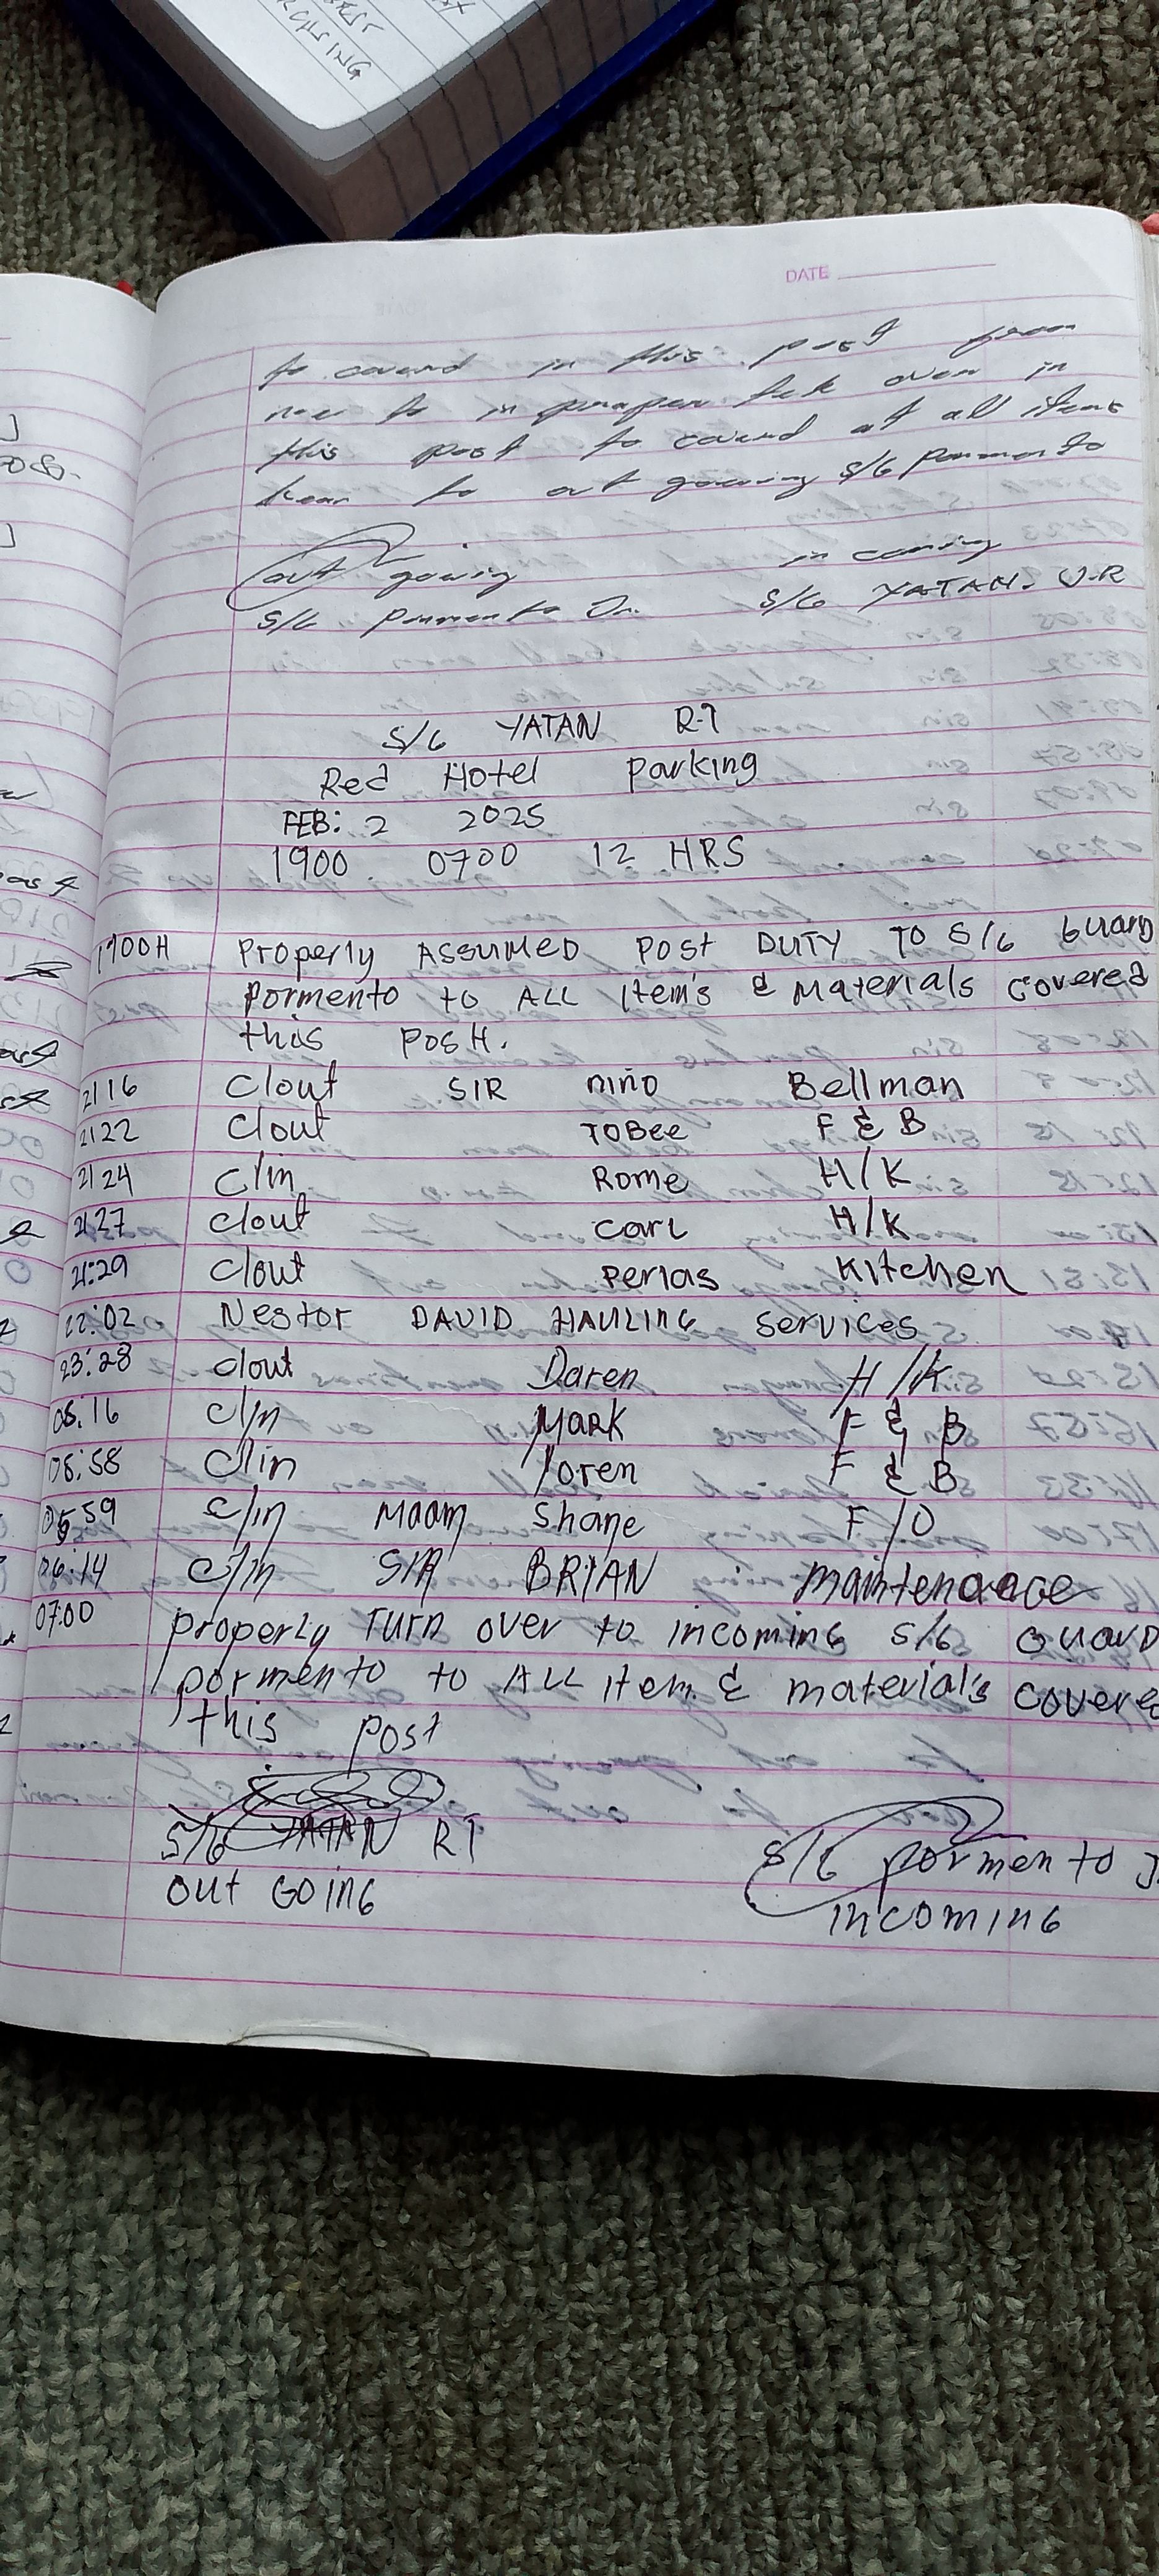 DATE
to covend in this post from
me to in proper tek over in
this post to covend at all items
hear to out gowing S/G Pormento
out gowing in coming
S/G Pormento Jr. S/G YATAN. J.R
S/G YATAN R.T
Red Hotel parking
FEB: 2 2025
1900 0700 12 HRS
1900H Properly ASSUMED POST DUTY TO S/G GUARD
Pormento to ALL Item's & Materials covered
this post.
2116 C/out SIR niño Bellman
2122 C/out TOBee F & B
2124 C/in Rome H/K
2127 C/out carl H/K
21:29 C/out perias Kitchen
22:02 Nestor DAVID HAULING services
23:28 C/out Daren H/K
05:16 C/in Mark F & B
05:58 C/in Loren F & B
0559 C/in Maam Shane F/O
06:14 C/in SIR BRYAN maintenance
07:00 properly Turn over to incoming S/G GUARD
pormento to ALL item & material's covere
this post
S/G YATAN RT
S/G pormento J
out GOING
incoming